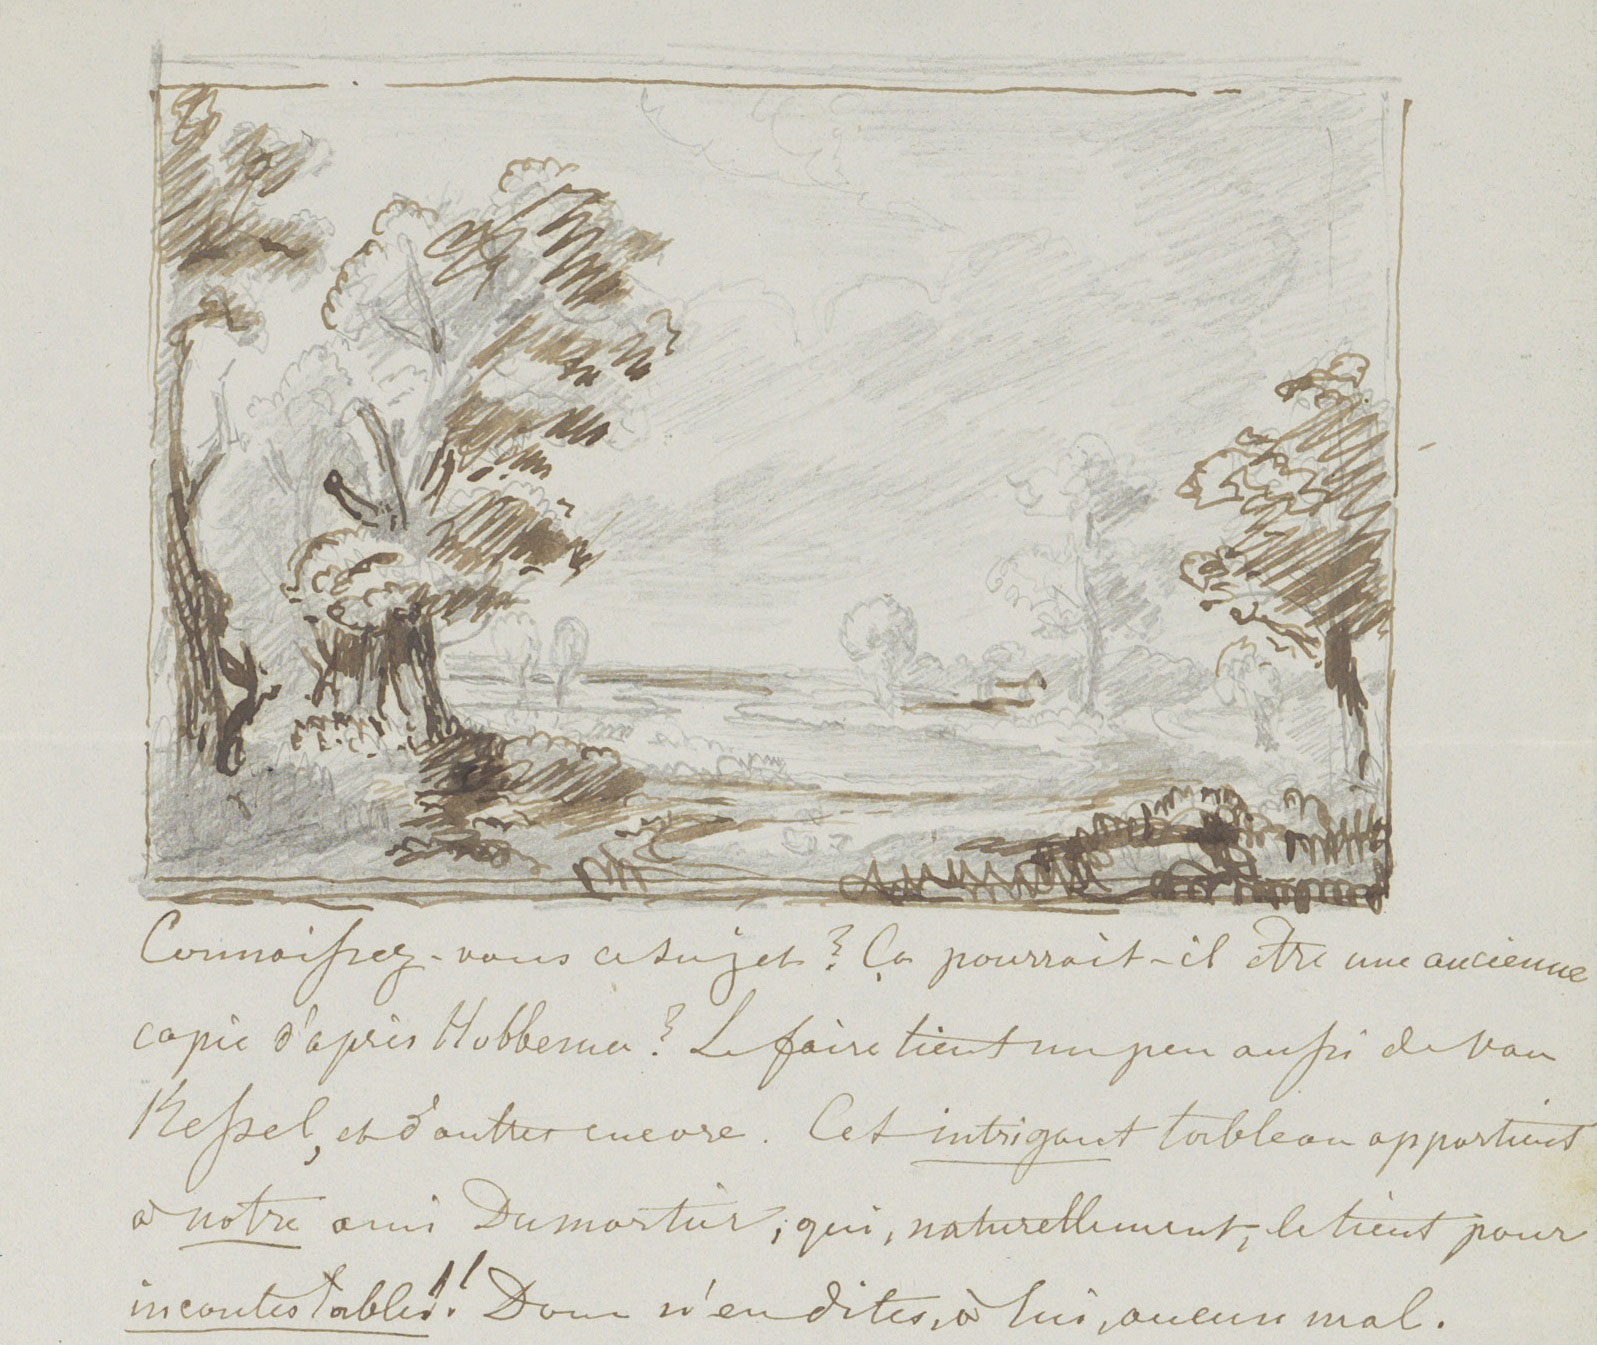 Connaissez-vous ce sujet? Ça pourrait-il être une ancienne
copie d'après Hobbema? Le faire tient un peu aussi de van
Kessel, et d'autres encore. Cet intrigant tableau appartient
à notre ami Dumortier, qui, naturellement, le tient pour
incontestable!! Donc n'en dites, à lui, aucun mal.